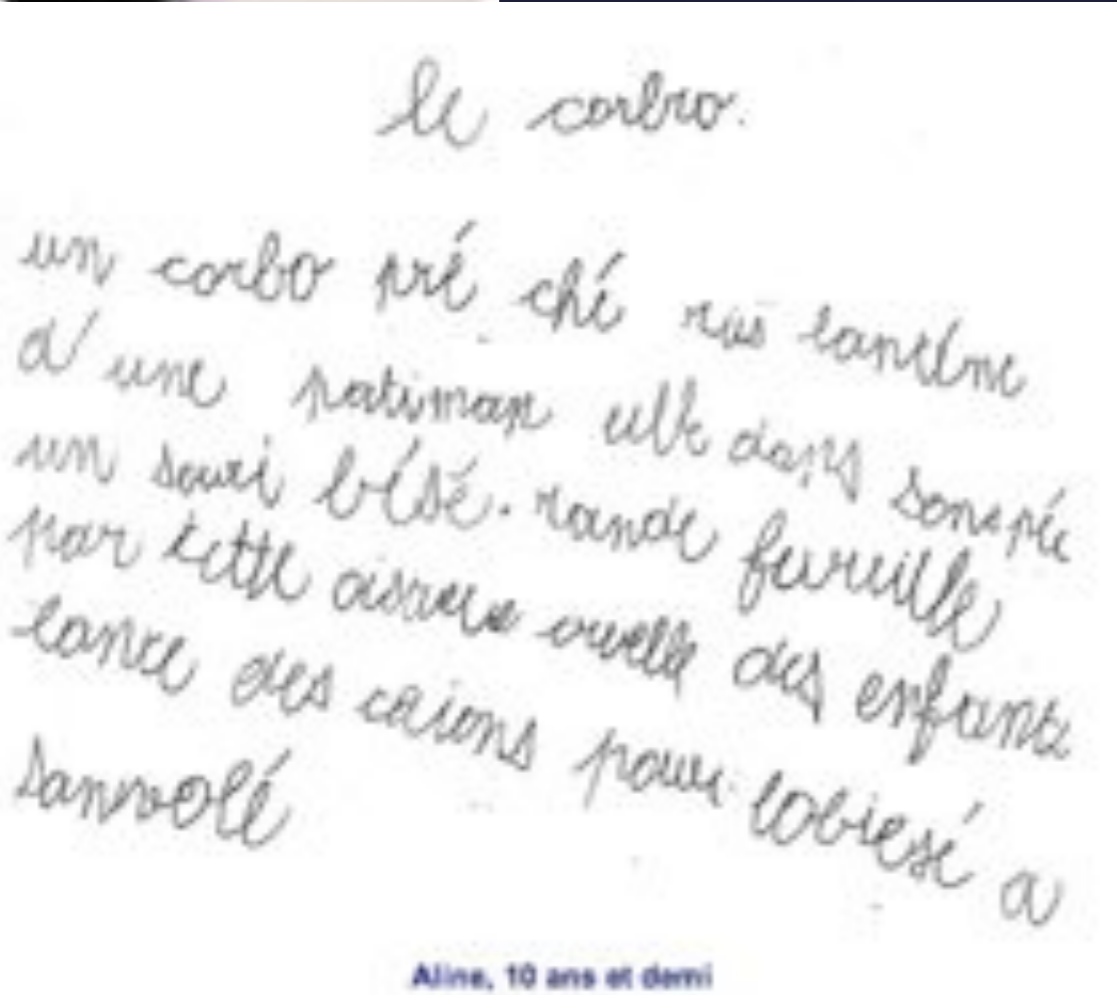 le corbro.
un corbo pré ché lanténe
d'une patiman ulle dans
un souri bésé. rande feuruille
par cette oiseux des enfants
lance des caions pour lobiesé a
sanvolé
Aline, 10 ans et demi